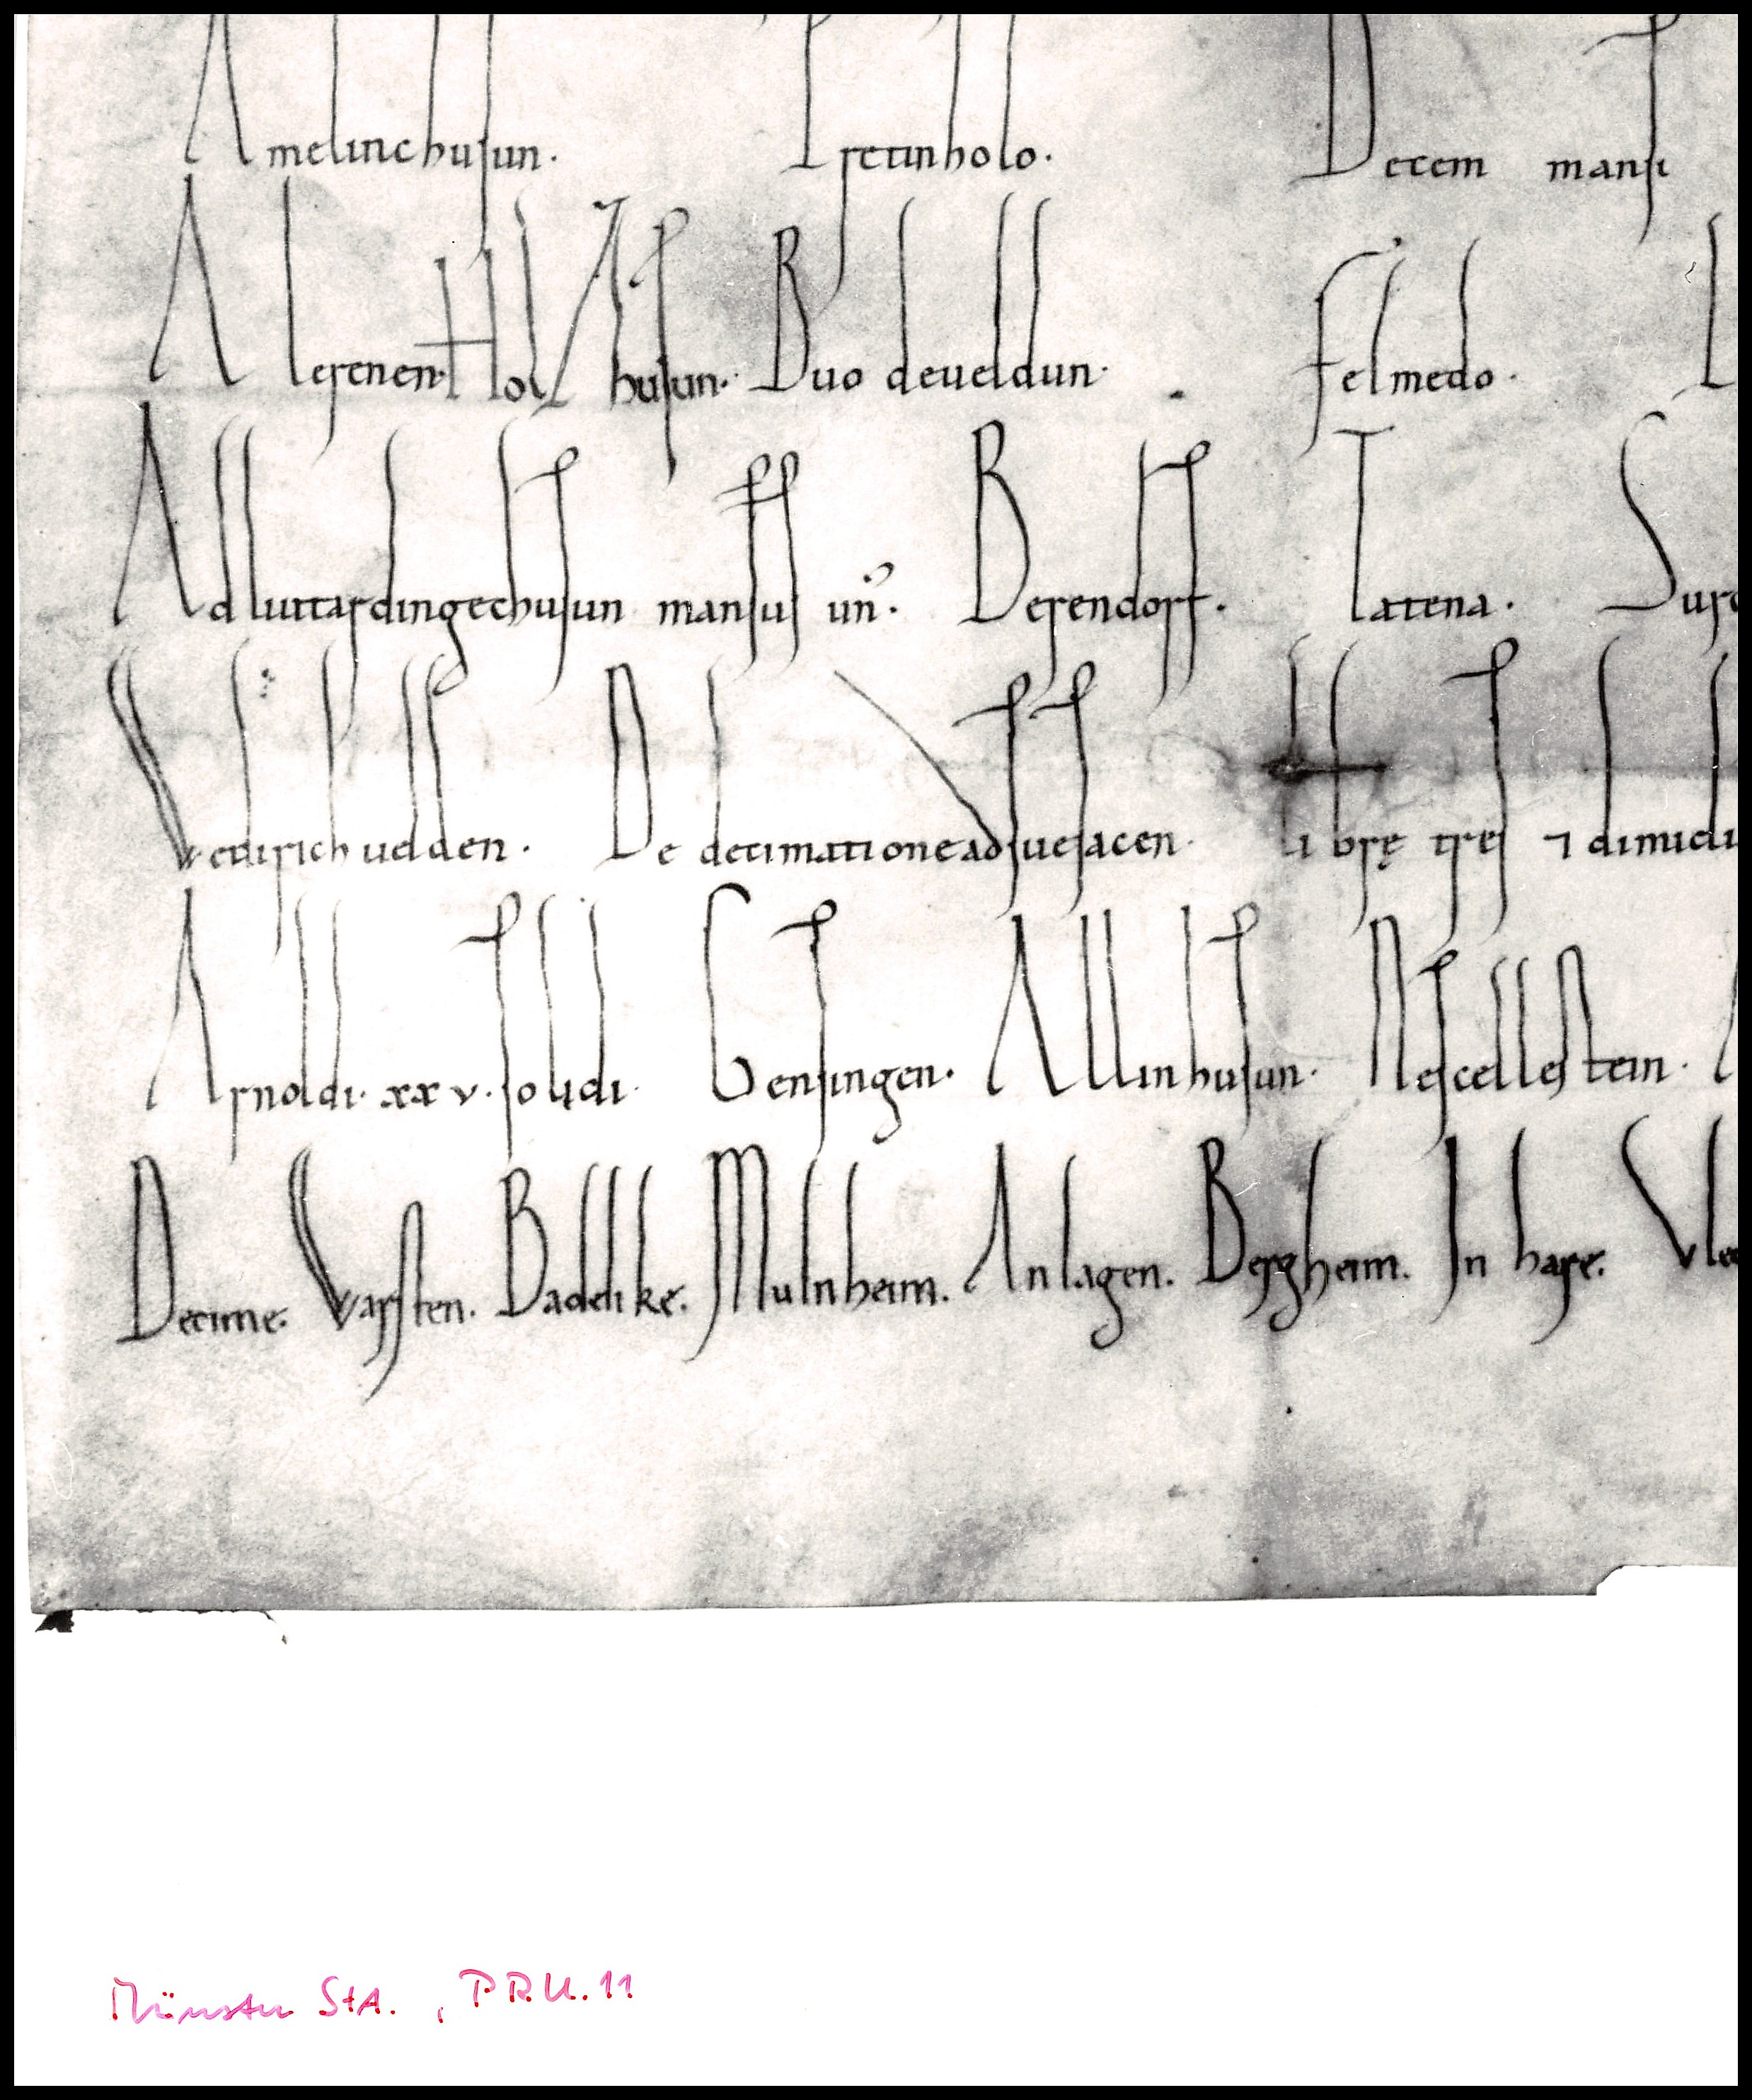 Amelinchusun. Iretinholo. Decem mansi
Alerenen. Holthusun. Buo deueldun. Felmedo. L
Ad luttardingechusun mansus un̄. Berendorf. Tatena. Sure
Wedirich uelden. De decimatione ad suesacen. Librę tres ⁊ dimidi
Arnoldi. xxv. solidi. Gensingen. Allinhusun. Nescellestein. A
Decime. Warsten. Baddelike. Mulnheim. Anlagen. Bergheim. In hare. Vle
Münster StA., PRU. 11